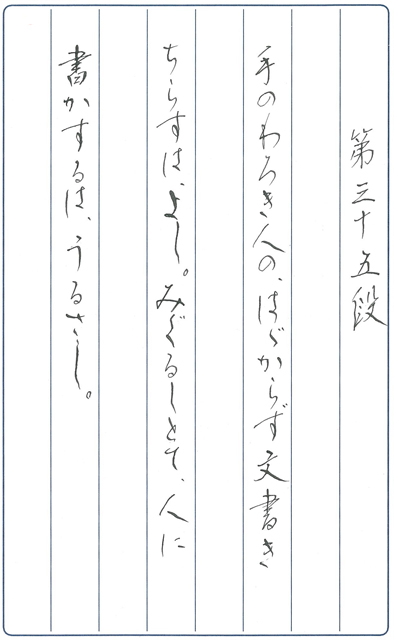 第三十五段
手のわろき人の、はゞからず文書き
ちらすは、よし。みぐるしとて、人に
書かするは、うるさし。